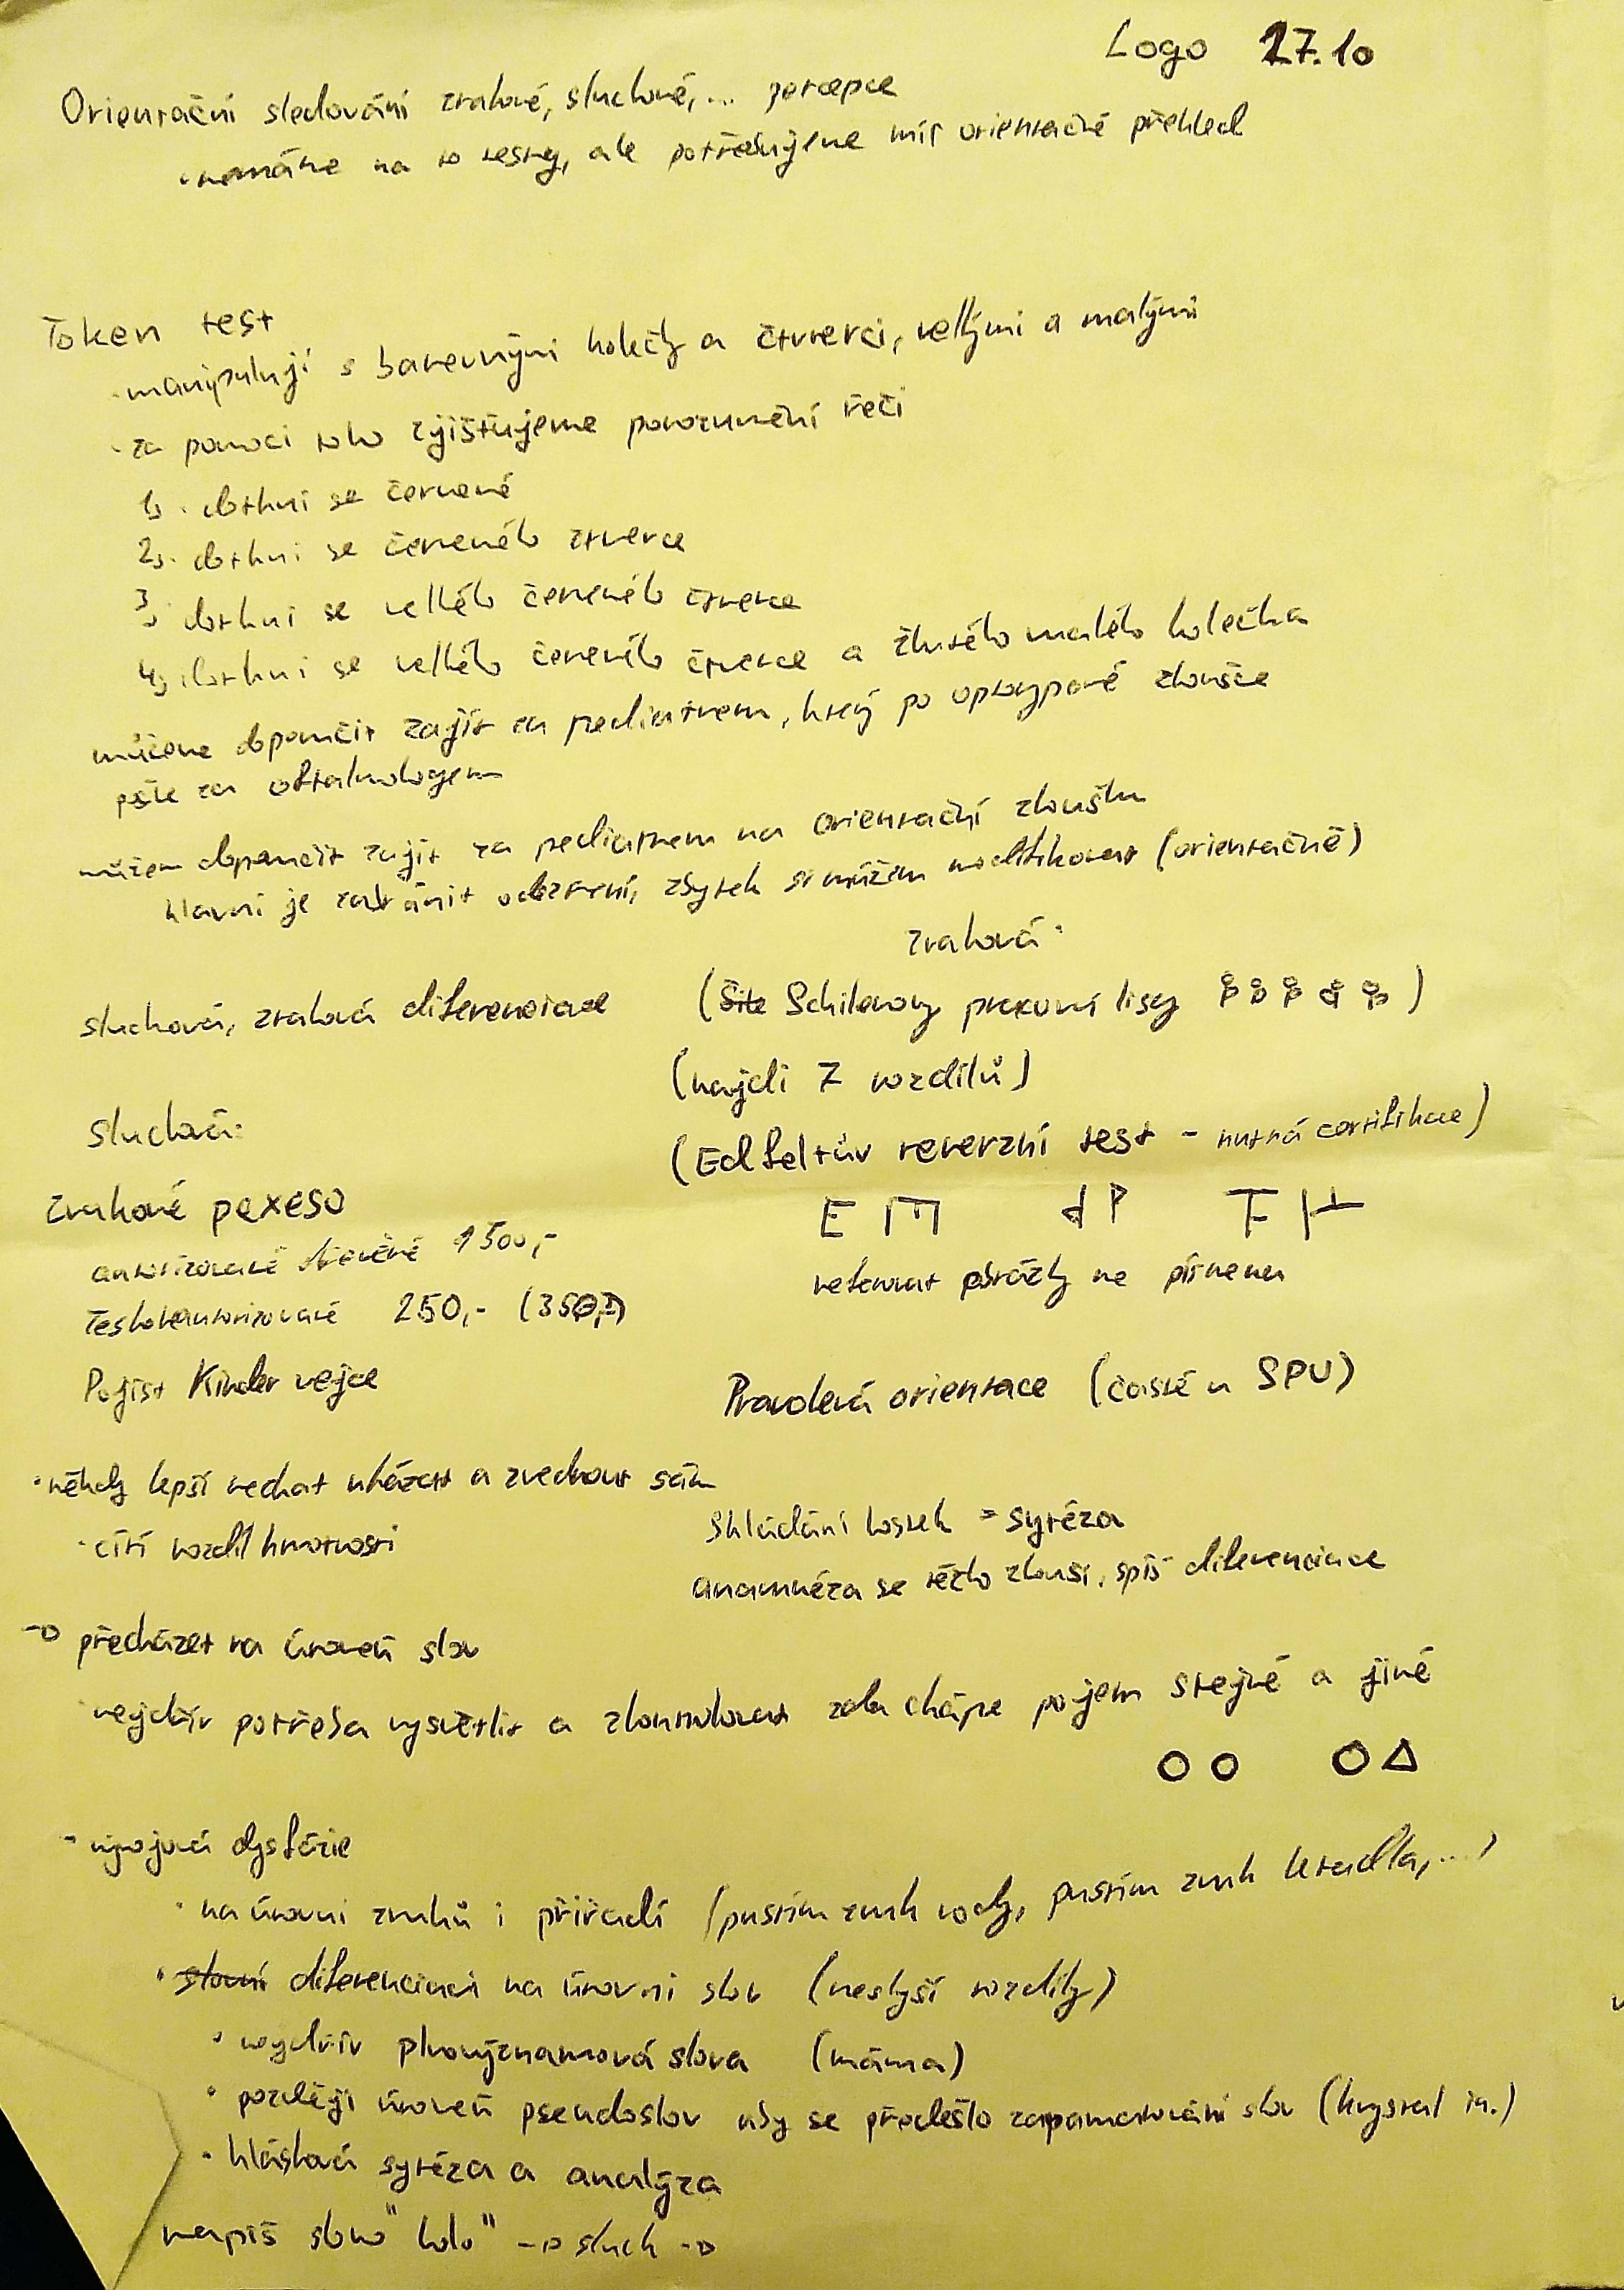 Logo 27.10
Orientační sledování zrakové, sluchové,... percepce
• nemáme na to testy, ale potřebujeme mít orientačně přehled
Token test
• manipulují s barevnými kolečky a čtverci, velkými a malými
• za pomoci toho zjišťujeme porozumění řeči
1, • dotkni se červené
2, • dotkni se červeného čtverce
3, • dotkni se velkého červeného čtverce
4, • dotkni se velkého červeného čtverce a žlutého malého kolečka
můžeme doporučit zajít za pediatrem, který po zkoušce
pošle za oftalmologem
můžem doporučit zajít za pediatrem na orientační zkoušku
hlavní je zachránit odezření, zbytek si můžem modifikovat (orientačně)
zraková:
sluchová, zraková diferenciace
(Schilerovy pracovní listy)
(najdi 7 rozdílů)
sluchová:
(Edfeltův reverzní test - nutná certifikace)
E E d P F F
reagovat obrázky ne písmena
Zvukové pexeso
autorizované dřevěné 1500,-
českoneautorizované 250,- (350,-)
Pojist Kinder vejce
Pravolevá orientace (časté u SPU)
• někdy lepší nechat uházet a zvednout sám
• cítí rozdíl hmotnosti
Skládání kostek = sytéza
anamnéza se těžko zkouší, spíš diferenciace
→ přecházet na úroveň slov
• nejdřív potřeba vysvětlit a zkontrolovat zda chápe pojem stejné a jiné
- vývojová dysfázie
• na úrovni zvuků i přiřadí (pustím zvuk vody, pustím zvuk letadla,...)
• slovní diferenciaci na úrovni slov (neslyší rozdíly)
• nejdřív plnovýznamová slova (máma)
• později úroveň pseudoslov aby se předešlo zapamatování slov (krystal in.)
• hlásková sytéza a analýza
napiš slovo "kolo" → sluch →